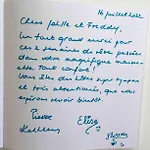 16 juillet 2022
Chers et Freddy,
Un tout grand merci pour
ces 2 semaines de rêve passées
dans votre magnifique maison
elle tout confort!
Vous êtes des hôtes super sympas
et très attentionnés, que nous
espérons revoir bientôt.
Pierre Elisa